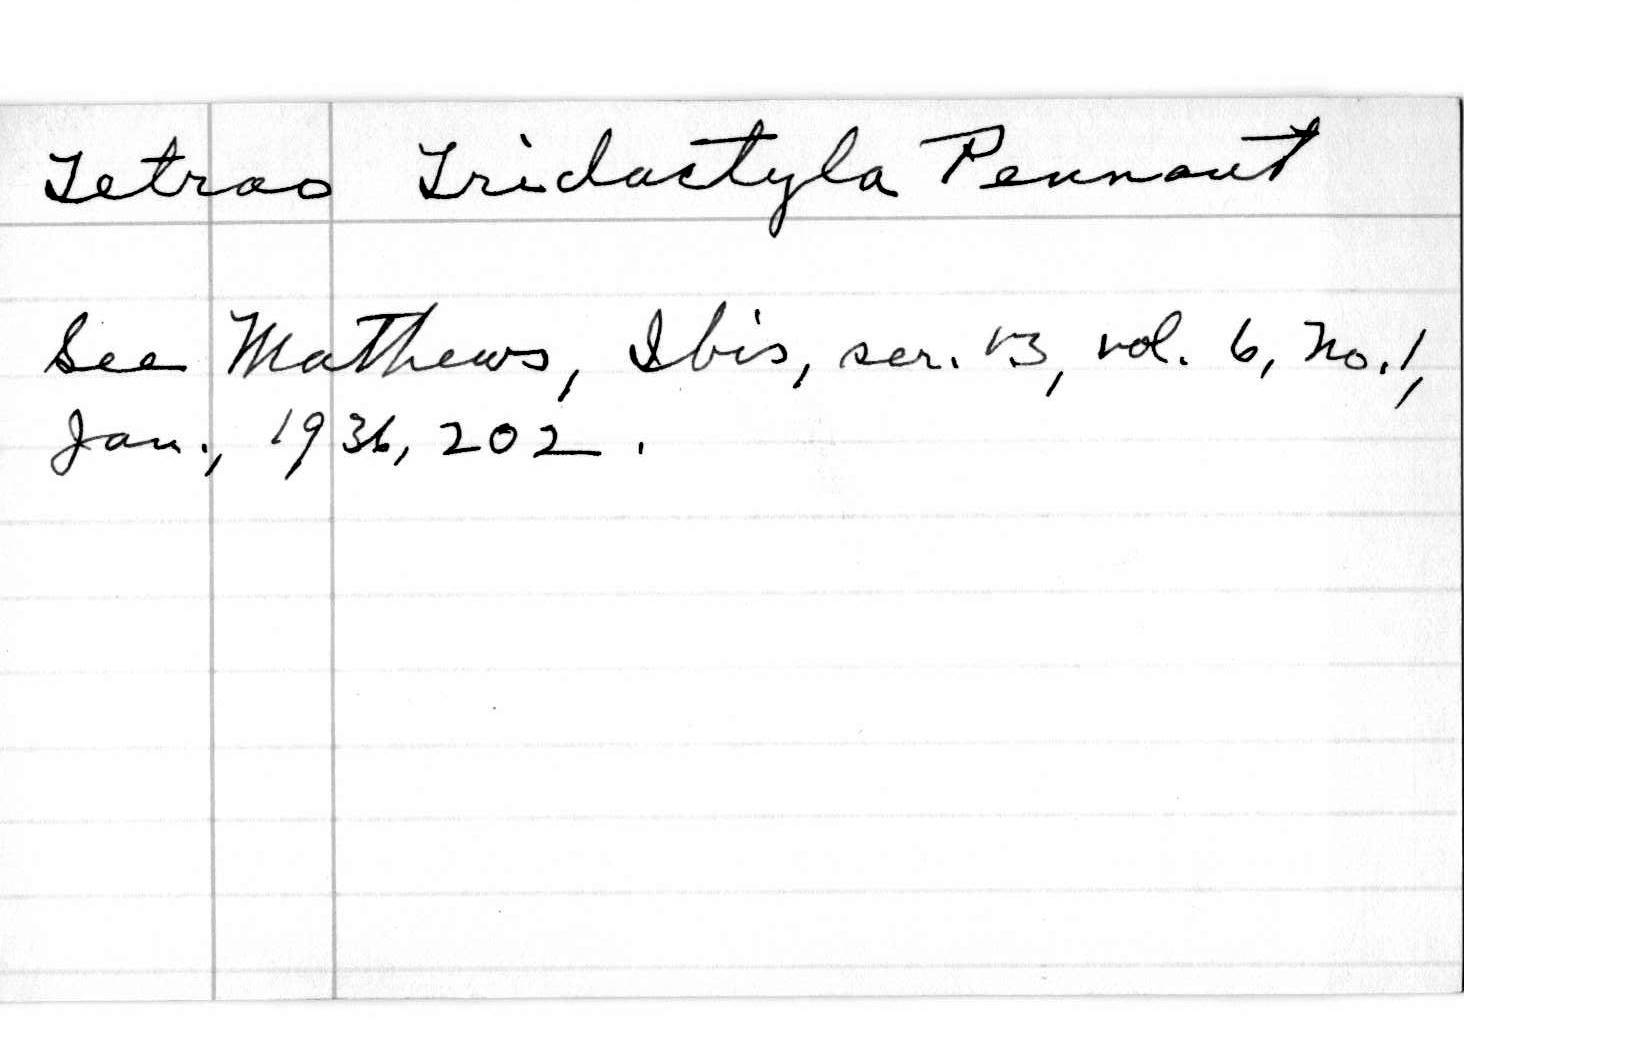 Tetrao Tridactyla Pennant
See Mathews, Ibis, ser. 13, vol. 6, No. 1,
Jan., 1936, 202.